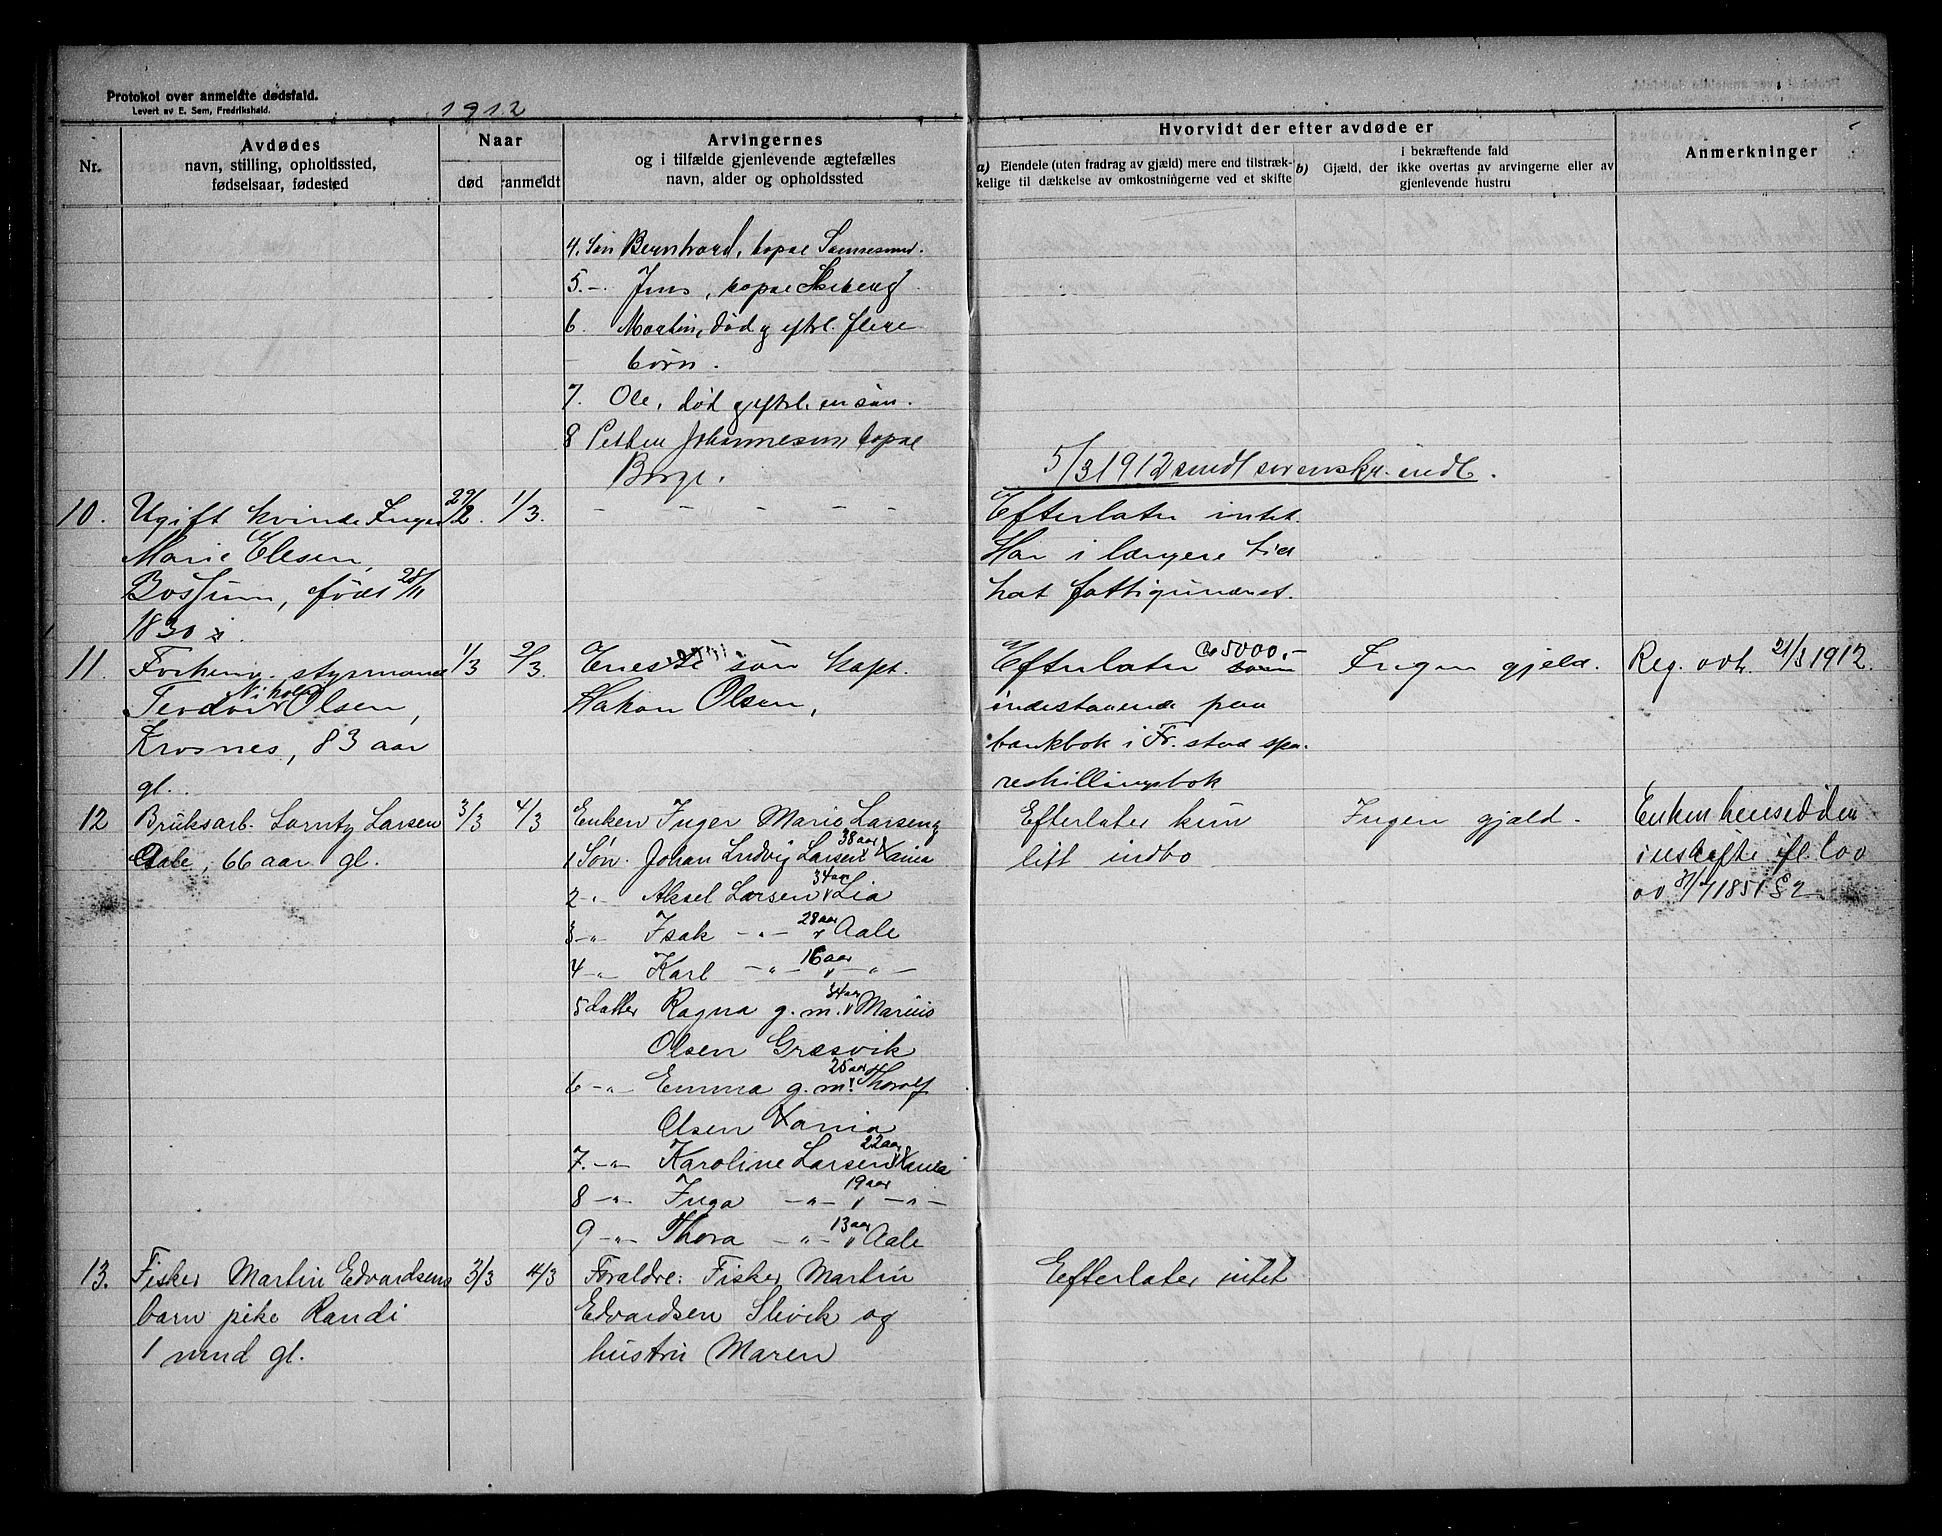 Protokol over anmeldte dødsfald.
Levert av E. Sem, Fredrikshald.
1912
Nr.
Avdødes
navn, stilling, opholdssted,
fødselsaar, fødested
Naar
død
anmeldt
Arvingernes
og i tilfælde gjenlevende ægtefælles
navn, alder og opholdssted
Hvorvidt der efter avdøde er
a) Eiendele (uten fradrag av gjæld) mere end tilstræk-
kelige til dækkelse av omkostningerne ved et skifte
b) Gjæld, der i bekræftende fald
ikke overtas av arvingerne eller av
gjenlevende hustru
Anmerkninger
4. Søn Bernhard, bopæl Sannesund.
5. - Jens, bopæl Skeberg
6. Martin, død og efterl. flere
børn.
7. Ole, død og efterl. en søn.
8 Petter Johannesen, bopæl
Borge.
5/3 1912 sendt sorenskr. indb.
10. Ugift kvinde Inger
Marie Olsen,
Bossum, født 28/11
1830 i
29/2. 1/3.
- - - - -
Efterlater intet.
Har i længere tid
hat fattigunderst.
11. Forhenv. styrmand
Teodor Nikolai Olsen,
Krosnes, 83 aar
gl.
1/3 2/3.
Eneste søn kapt.
Hakon Olsen,
Efterlater Ca 5000,-
indestaaende paa
bankbok i Fr.stad spa-
reskillingsbok
Ingen gjeld.
Reg. avh. 21/3 1912.
12 Bruksarb. Lorntz Larsen
Aale, 66 aar gl.
3/3 4/3
Enken Inger Marie Larsen og
1 Søn. Johan Ludvig Larsen 38 aar Xania
2 -"- Aksel Larsen 34 aar Lia
3 -"- Isak -"- 28 aar Aale
4 -"- Karl -"- 16 aar -"-
5 datter Ragna g. m. 34 aar Marius
Olsen Græsvik
6 -"- Emma g. m. 25 aar Thorolf
Olsen Xania
7. -"- Karoline Larsen 22 aar Xania
8 -"- Inga -"- 19 aar -"-
9 -"- Thora -"- 13 aar Aale
Efterlater kun
litt indbo
Ingen gjæld.
Enken hensidden
i uskifte ifl. lov
av 31/7 1851 § 2
13. Fisker Martin Edvardsens
barn pike Randi
1 mnd gl.
3/3 4/3
Foraldre: Fisker Martin
Edvardsen Slevik og
hustru Maren
Efterlater intet